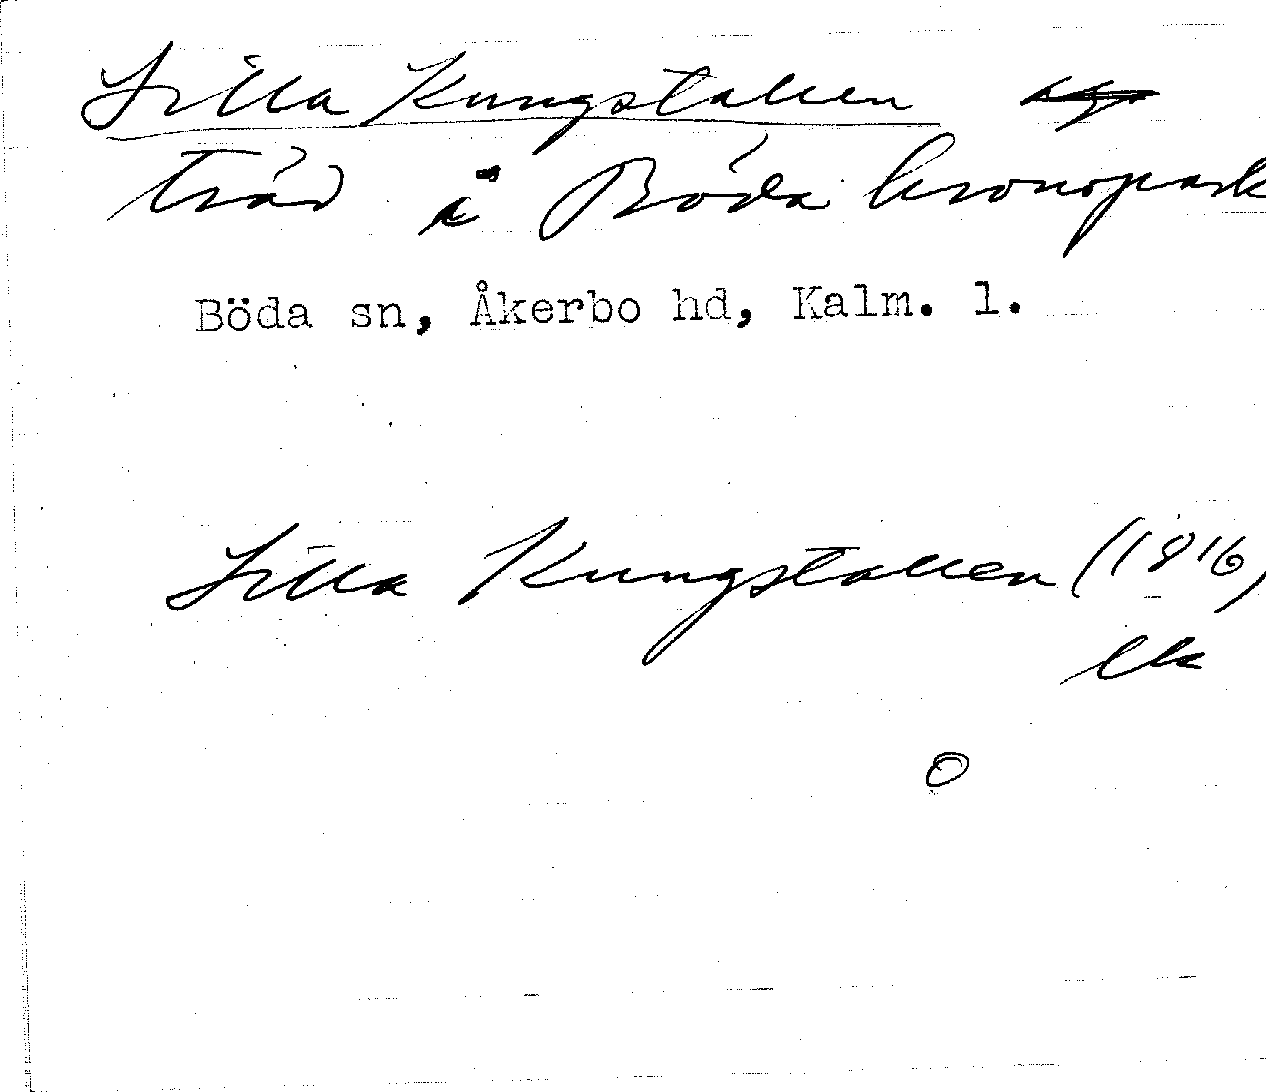 Lilla Kungstallen
träd å Böda kronopark
Böda sn, Åkerbo hd, Kalm. l.
Lilla Kungstallen (1816)
ek